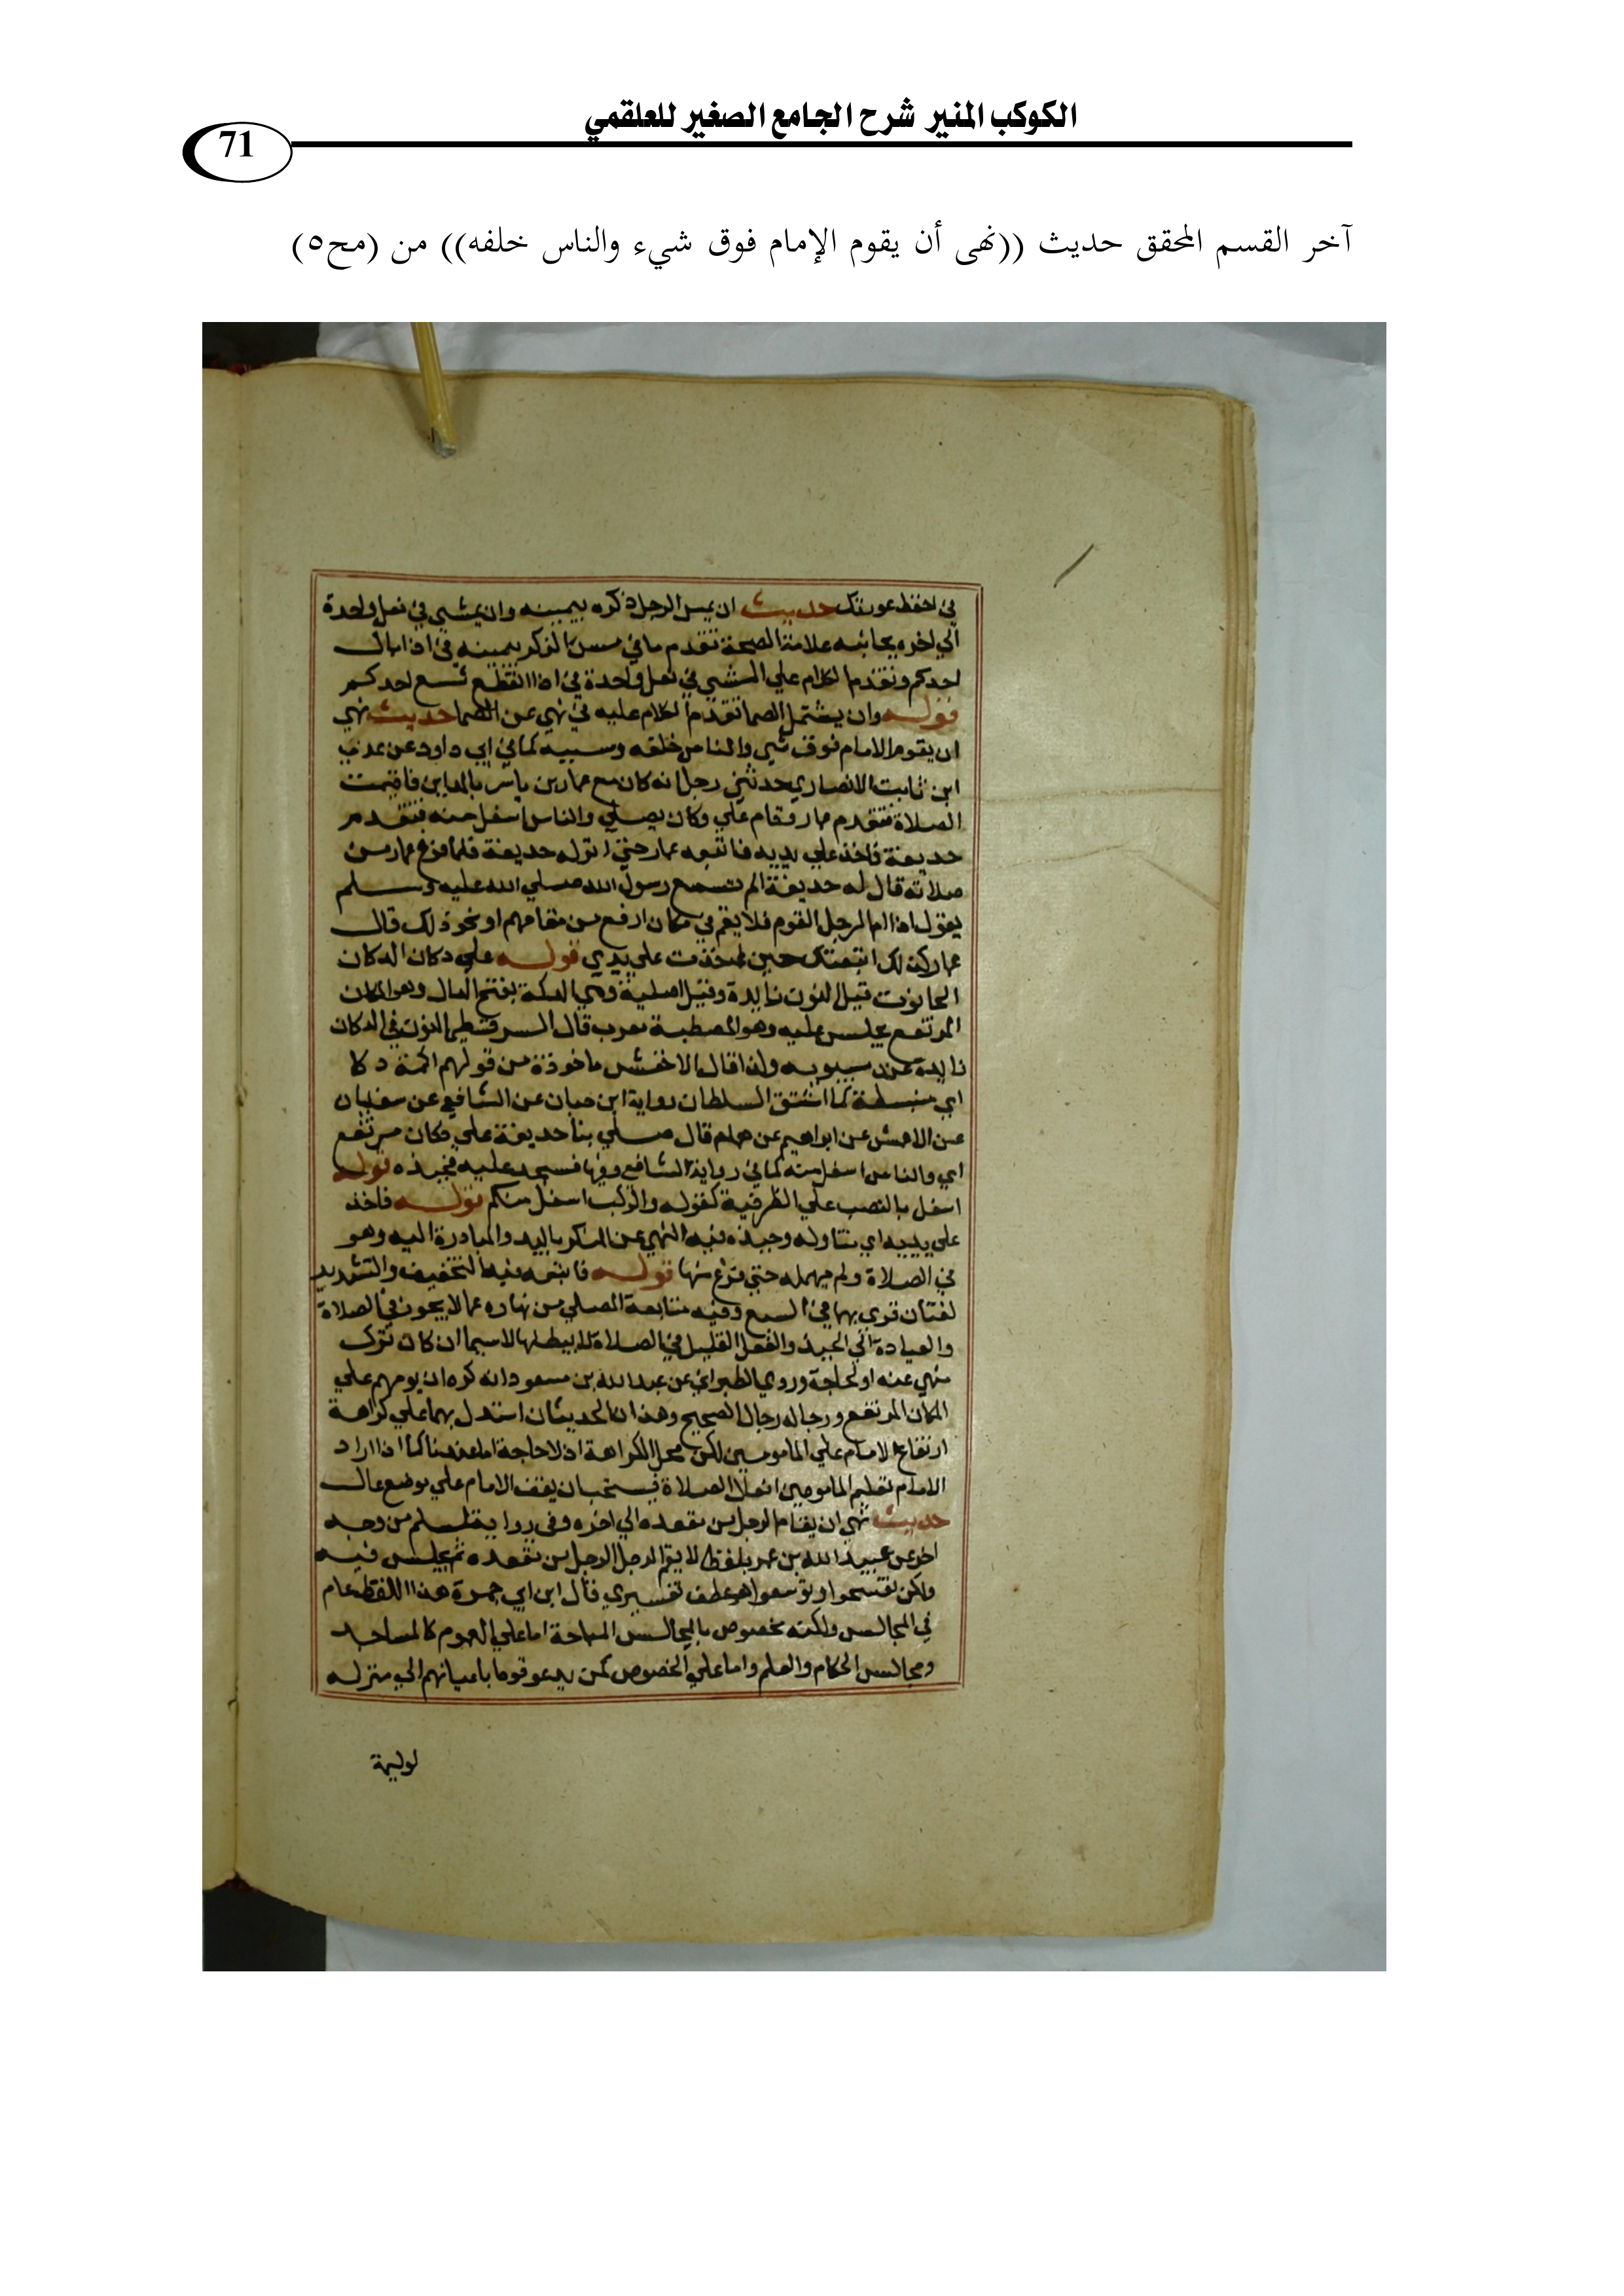 الكوكب المنير شرح الجامع الصغير للعلقمي
71
آخر القسم المحقق حديث ((نهى أن يقوم الإمام فوق شيء والناس خلفه)) من (مح٥)
في احفظ عورتك حديث ان يمس الرجل ذكره بيمينه وان يمشي في نعل واحدة
الي اخره بجانبه علامة الصحة تقدم ما في مس الذكر بيمينه في اذا بال
احدكم وتقدم الكلام علي المشي في نعل واحدة في اذا انقطع شسع احدكم
قوله وان يشتمل الصما تقدم الكلام عليه في نهي عن الصما حديث نهي
ان يقوم الامام فوق شي والناس خلفه وسببه كما في ابي داود عن عدي
ابن ثابت الانصاري حدثني رجل انه كان مع عمار بن ياسر بالمداين فاقيمت
الصلاة فتقدم عمار وقام علي وكان يصلي والناس اسفل منه فتقدم
حذيفة فاخذ علي يديه فاتبعه عمار حتي انزله حذيفة فلما فرغ عمار من
صلاته قال له حذيفة الم تسمع رسول الله صلي الله عليه وسلم
يقول اذا ام الرجل القوم فلا يقم في مكان ارفع من مقامهم او نحو ذلك قال
عمار لذلك اتبعتك حين اخذت علي يدي قوله علي دكان الدكان
الحانوت قيل النون زايدة وقيل اصلية وهي الدكة بفتح الدال وهو المكان
المرتفع يجلس عليه وهو المصطبة معرب قال السرقسطي النون في الدكان
زايدة عند سيبويه ولذا قال الاخفش ماخوذة من قولهم اكمة دكا
اي منبسطة كما اشتق السلطان رواية ابن حبان عن الشافعي عن سفيان
عن الاعمش عن ابراهيم عن همام قال صلي بنا حذيفة علي مكان مرتفع
اي والناس اسفل منه كما في رواية الشافعي وفيها فسجد عليه فجبذه قوله
اسفل بالنصب علي الظرفية كقوله والركب اسفل منكم قوله فاخذ
علي يديه اي تناوله وجبذه فيه النهي عن المنكر باليد والمبادرة اليه وهو
في الصلاة ولم يمهله حتي فرغ منها قوله فاتبعه فيه التخفيف والتشديد
لغتان قري بهما في السبع وفيه متابعة المصلي من نهاه عما لا يجوز في الصلاة
والفعل القليل في الصلاة لا يبطلها لاسيما ان كان ترك
منهي عنه او لحاجة وروي الطبراني عن عبد الله بن مسعود انه كره ان يومهم علي
المكان المرتفع ورجاله رجال الصحيح وهذان الحديثان استدل بهما علي كراهة
ارتفاع الامام علي المامومين لكن محل الكراهة اذ لا حاجة اما عندنا كما اذا اراد
الامام تعليم المامومين افعال الصلاة فيستحب ان يقف الامام علي موضع عال
حديث نهي ان يقام الرجل من مقعده الي اخره وفي رواية لمسلم من وجه
اخر عن عبيد الله بن عمر بلفظ لا يقم الرجل الرجل من مقعده ثم يجلس فيه
ولكن تفسحوا وتوسعوا هو عطف تفسيري قال ابن ابي جمرة هذا اللفظ عام
في المجالس ولكنه مخصوص بالمجالس المباحة اما علي العموم كالمساجد
ومجالس الحكام والعلم واما علي الخصوص كمن يدعو قوما باعيانهم الي منزله
لوليمة